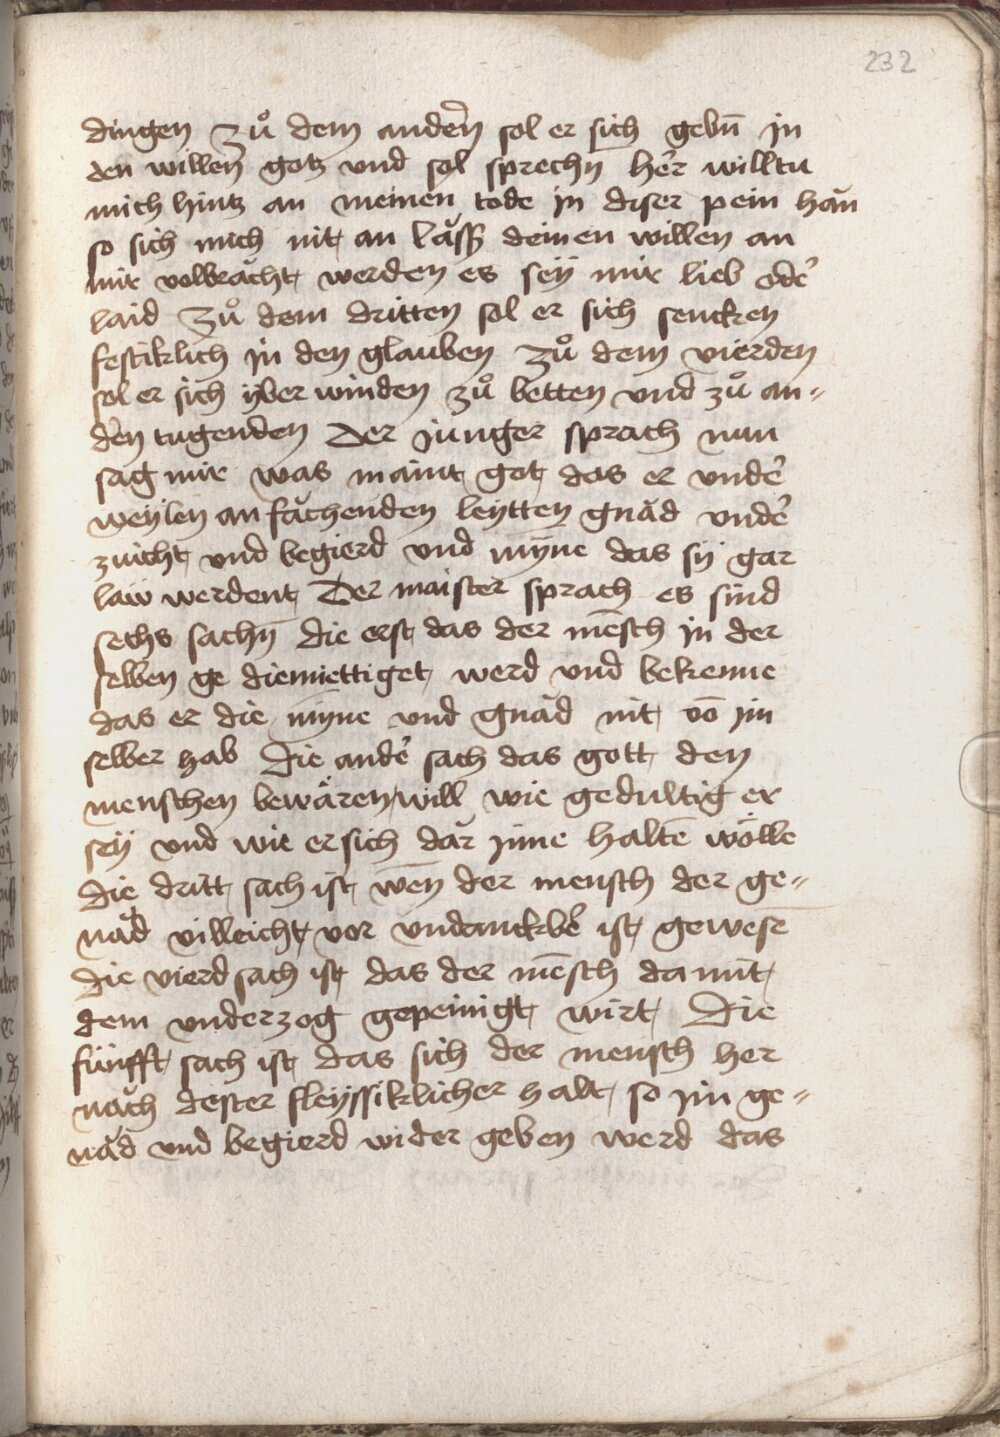 232
dingen zů dem andern̄ sol er sich gebn̄ in
den willen gotz vnd sol sprechn̄ her̄ willtu
mich hintz an meinen tode in diser pein han
so sich mich nit an låsß deinen willen an
mir volbracht werden es sey mir lieb oder̄
laid Zů dem dritten sol er sich sencken
festiklich in den glauben Zů dem vierden
sol er sich yber winden zů betten vnd zů an⸗
dern̄ tugenden Der junger sprach nun
sag mir was maint got das er vnder̄
weylen an fåchenden leytten gnåd vnder̄
zuicht vnd begierd vnd myne das sy gar
law werdent Der maister sprach es sind
sechs sachn̄ die erst das der mēsch in der
selben ge diemiettiget werd vnd bekenne
das er die myne vnd gnåd nit vō im
selber hab Die ander̄ sach das gott den
menschen bewåren will wie gedultig er
sey vnd wie er sich dår jnne haltē wölle
die dritt sach ist wen̄ der mensch der ge⸗
nåd villeicht vor vndanckbē ist gewesē
die vierd sach ist das der mēsch da mit
dem vnderzog gepeinigt wirt Die
fünfft sach ist das sich der mensch her
nåch dester fleyssiklicher halt so im ge⸗
nåd vnd begierd wider geben werd das